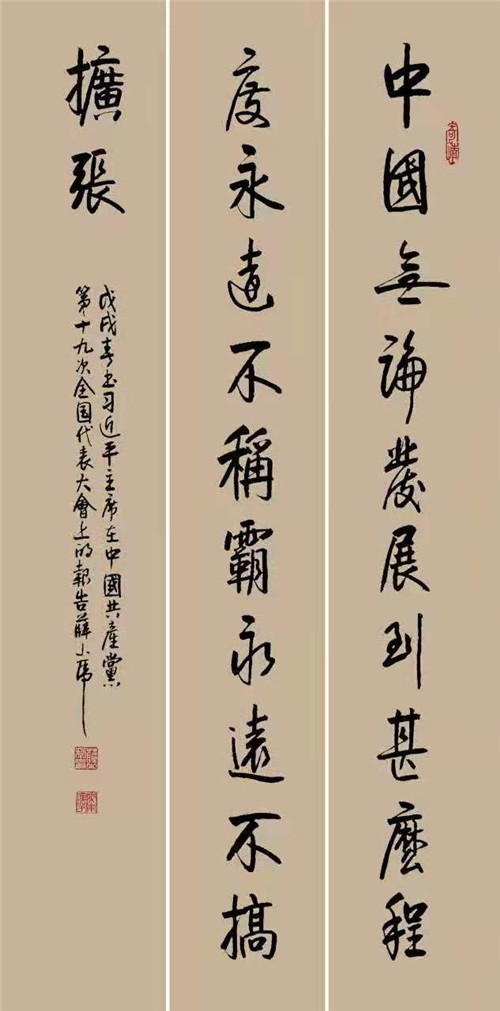 中國無論發展到甚麼程
度永遠不稱霸永遠不搞
擴張
戊戌春书习近平主席在中國共產黨
第十九次全国代表大會上的報告薛小